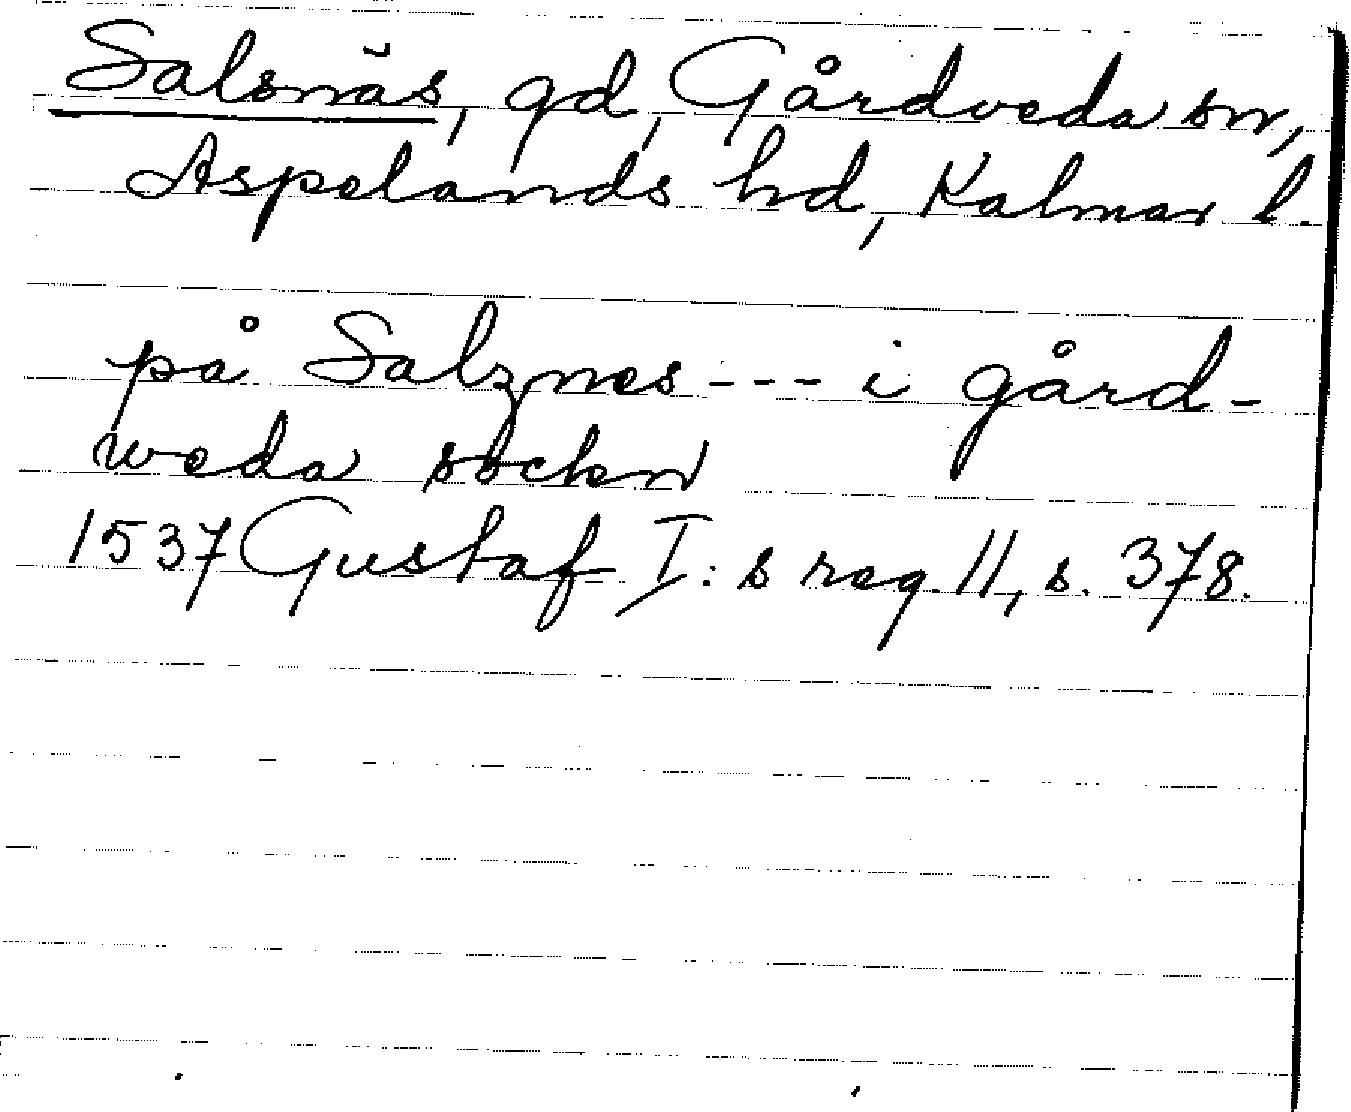 Salsnäs, gd, Gårdveda sn,
Aspelands hd, Kalmar l.
på Salznes --- i gård-
weda sockn
1537 Gustaf I:s reg. 11, s. 378.